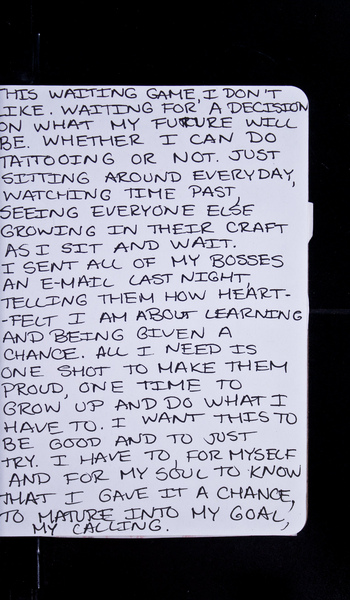 THIS WAITING GAME, I DON'T
LIKE. WAITING FOR A DECISION
ON WHAT MY FUTURE WILL
BE. WHETHER I CAN DO
TATTOOING OR NOT. JUST
SITTING AROUND EVERYDAY,
WATCHING TIME PAST,
SEEING EVERYONE ELSE
GROWING IN THEIR CRAFT
AS I SIT AND WAIT.
I SENT ALL OF MY BOSSES
AN E-MAIL LAST NIGHT,
TELLING THEM HOW HEART-
-FELT I AM ABOUT LEARNING
AND BEING GIVEN A
CHANCE. ALL I NEED IS
ONE SHOT TO MAKE THEM
PROUD, ONE TIME TO
GROW UP AND DO WHAT I
HAVE TO. I WANT THIS TO
BE GOOD AND TO JUST
TRY. I HAVE TO, FOR MYSELF
AND FOR MY SOUL TO KNOW
THAT I GAVE IT A CHANCE,
TO MATURE INTO MY GOAL,
MY CALLING.